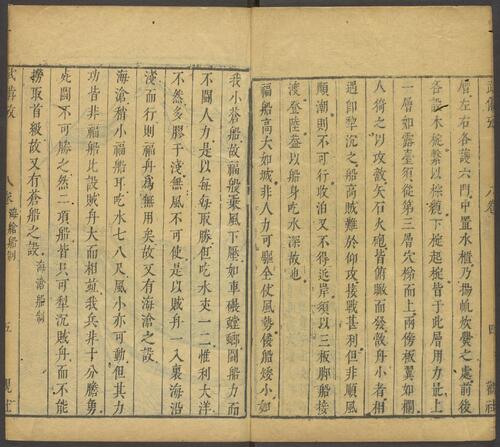 層左右各護六門中置水櫃乃揚帆炊爨之處前後
各設木椗繫以棕纜下椗起椗皆于此層用力最上
一層如露臺須從第三層穴梯而上兩傍板翼如欄
人倚之以攻敵矢石火砲皆俯瞰而發敵舟小者相
遇即犁沉之船高賊難於仰攻接戰甚利但非順風
順潮則不可行收泊又不得近岸須以三板脚船接
渡登陸蓋以船身吃水深故也
福船高大如城非人力可驅全仗風勢倭船矮小如
我小蒼船故福船乘風下壓如車碾螳螂鬪船力而
不鬪人力是以每每取勝但吃水一丈二惟利大洋
不然多膠于淺無風不可使是以賊舟一入裏海沿
淺而行則福舟為無用矣故又有海滄之設
海滄稍小福船耳吃水七八尺風小亦可動但其力
功皆非福船比設賊舟大而相並我兵非十分膽勇
死鬪不可勝之然二項船皆只可犁沉賊舟而不能
撈取首級故又有蒼船之設
海滄船制
海滄船制
五
四